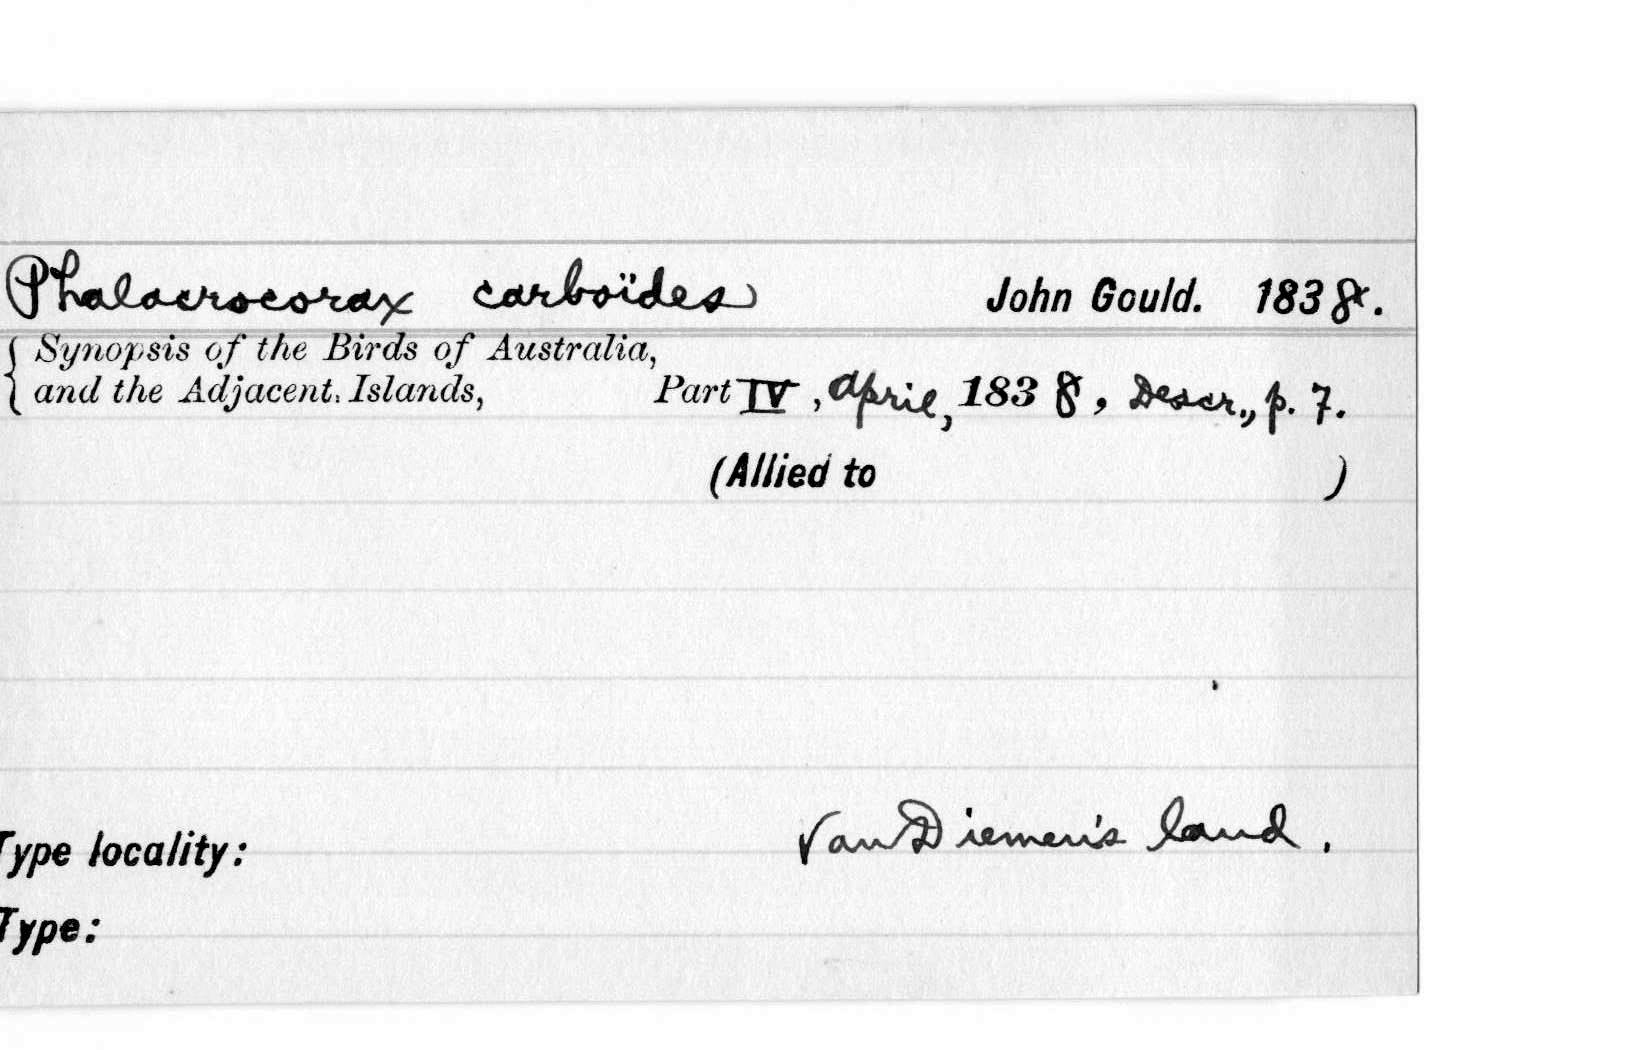 Phalacrocorax carboïdes John Gould. 1838.
Synopsis of the Birds of Australia,
and the Adjacent Islands, Part IV, April, 1838, Descr., p. 7.
(Allied to )
Type locality: Van Diemen's land.
Type: